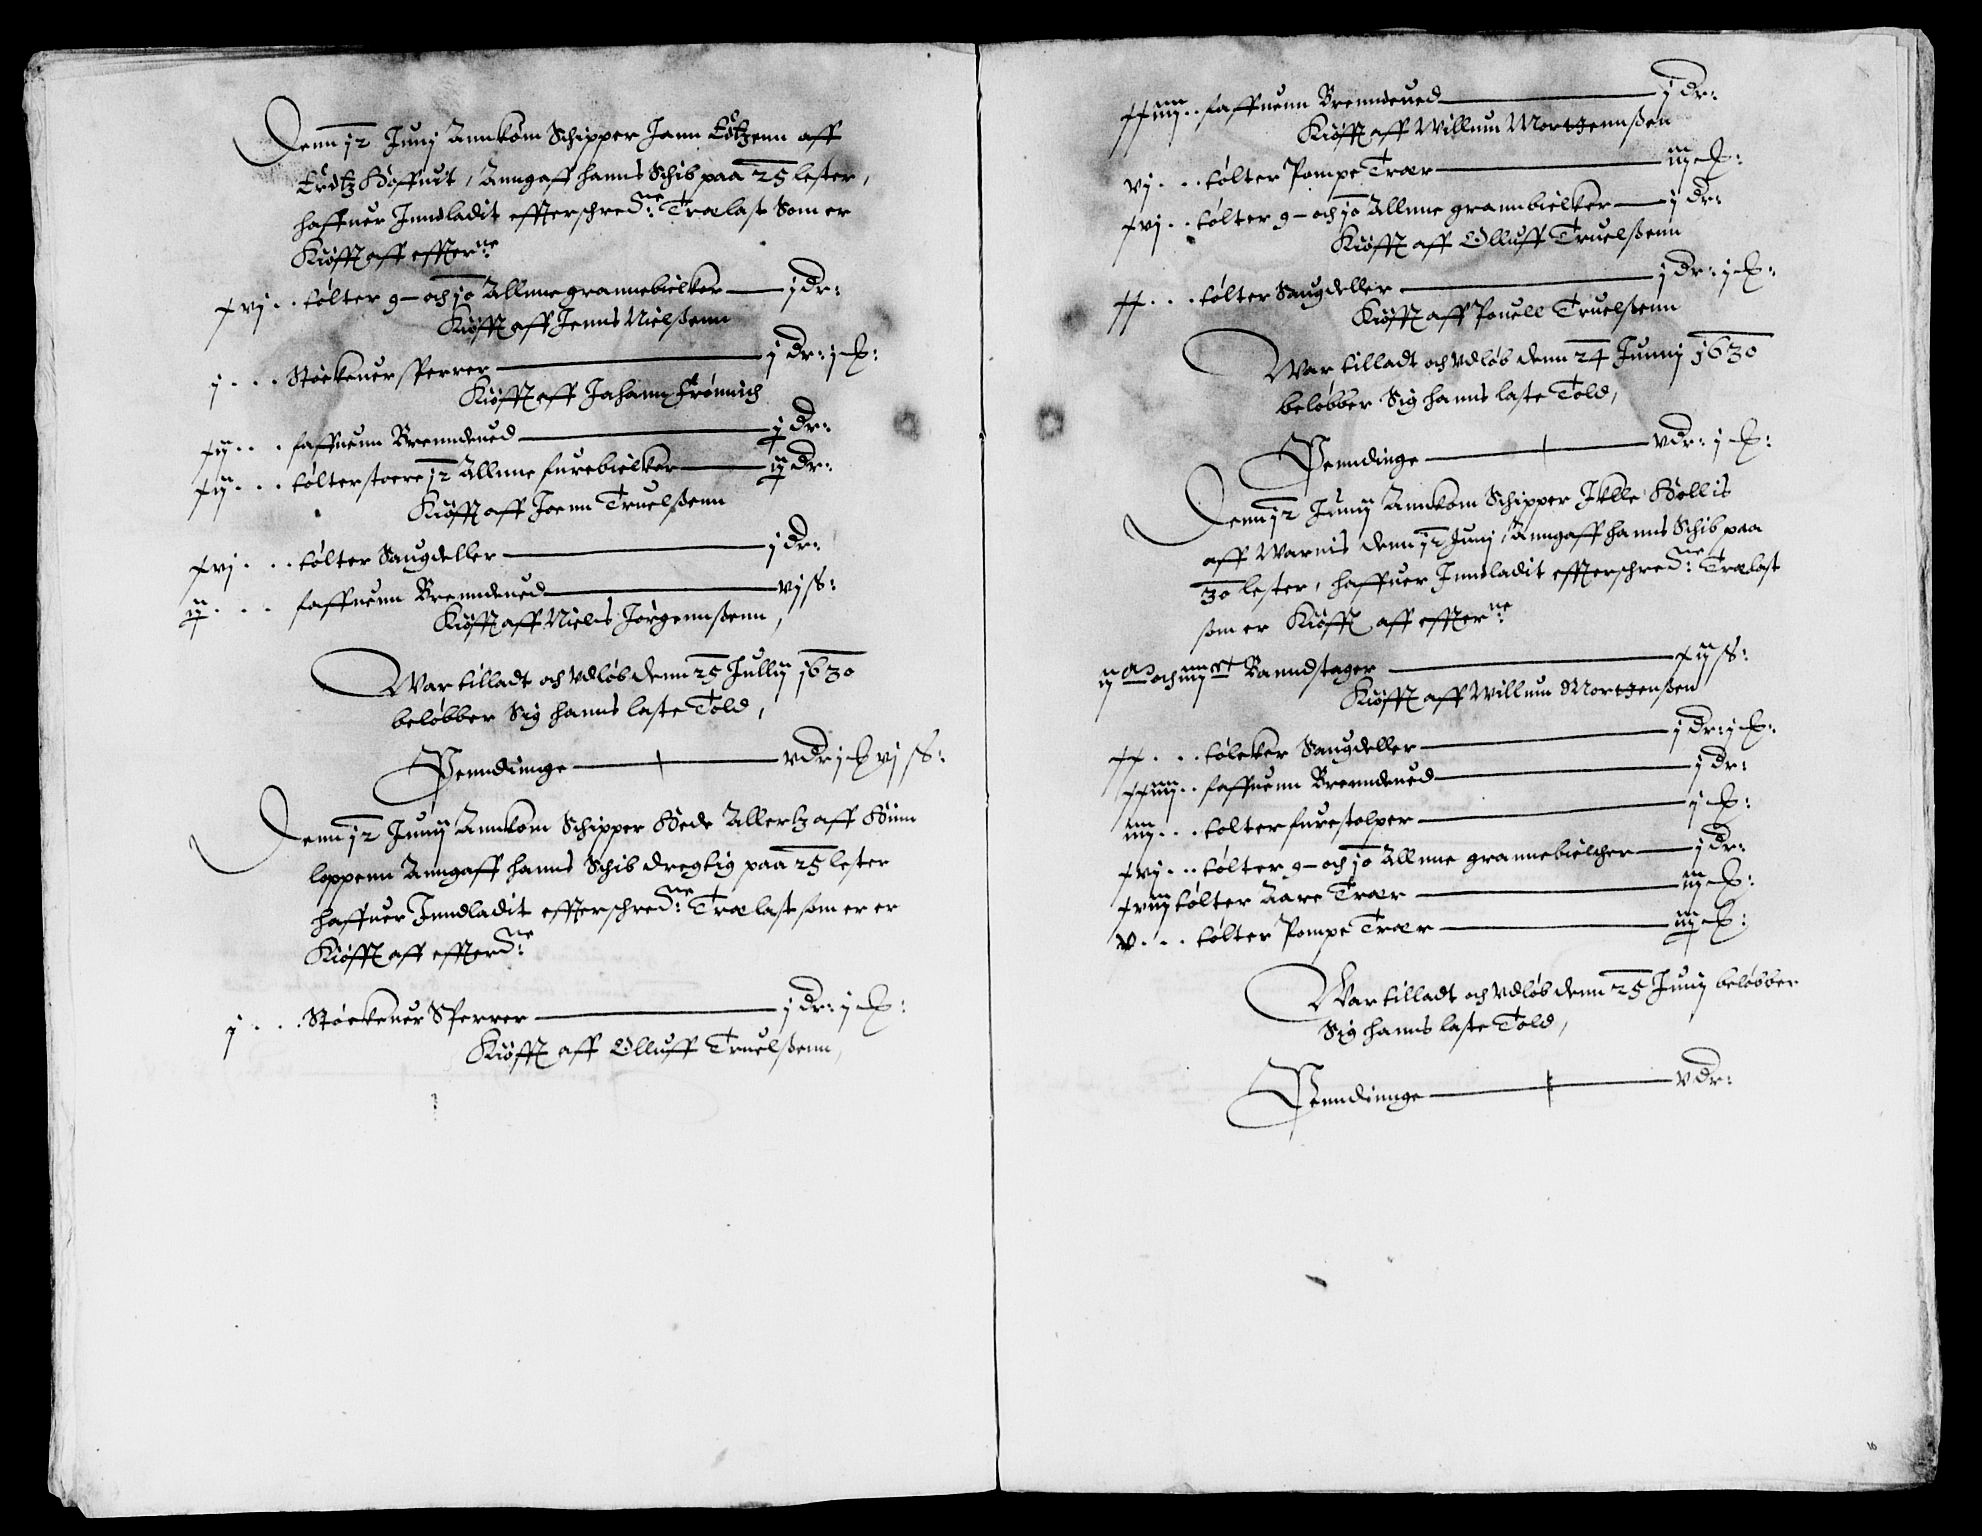 Denn 12 Junj Annkom Schipper Jann Lötzenn aff
Hoffuit, Anngaff hanns Schib paa 25 lester,
haffuer Inndladit effterschredne: Trælast Som er
Kiøfft aff effterne:
xvj . . tølter 9 - och 10 Allnne grannebielker — j dr:
Kiøfft aff Jenns Nielsßenn
j . . . Støckener sperrer — j dr: j :
Kiøfft aff Johann Frømich
xij . . . faffnenn Brenndeued — j dr:
xij . . . tølter stoere 12 Allnne furebielker — ij dr:
Kiøfft aff Joenn Truelsßenn
xvj . . . tølter Saugdeller — j dr:
ij . . . faffnenn Brenndeued — vj ß:
Kiøfft aff Niels Jørgennsßenn,
War tilladt och Vdløb denn 25 Jullij 1630
beløbber Sig hanns laste Told,
Penndinge — v dr j vj ß:
Denn 12 Junij Annkom Schipper Hede Allertz aff Hinn
loppenn Anngaff hanns Schib dregtig paa 25 lester
haffuer Inndladit effterschredne: Trælast som er er
Kiøfft aff effterdne:
j . . . Støckener Sperrer — j dr: j :
Kiøfft aff Olluff Truelsßenn,
xxiiij . . faffnenn Brenndeued — j dr:
Kiøfft aff Willum Mortzennsßen
vj . . . tølter Pompe Træer — iij :
xvj . . tølter 9 - och 10 Allnne grannbielker — j dr:
Kiøfft aff Olluff Truelsßenn
xx . . . tølter Saugdeller — j dr: j :
Kiøfft aff Pouell Truelsßenn
War tilladt och Vdløb denn 24 Junnij 1630
beløbber Sig hanns laste Told,
Penndinge — v dr: j :
Denn 12 Junij Annkom Schipper Iklle Hollis
aff Warnis denn 12 Junj, Anngaff hanns Schib paa
30 lester, haffuer Inndladit effterschredne: Trælast
som er Kiøfft aff effterne:
och iiij Banndstager — xij ß:
Kiøfft aff Willum Mortzensßen
xx . . . tølcker Saugdeller — j dr: j :
xxiiij . . faffnenn Brenndeued — j dr:
iiij . . . tølter furestolper — j :
xvj . . tølter 9 - och 10 Allnne grannebielcher — j dr:
xviij tølter Aare Træer — iij :
v . . . tølter Pompe Træer — iij :
War tilladt och Vdløb denn 25 Junij beløbber
Sig hanns laste Told,
Penndinnge — v dr:
10